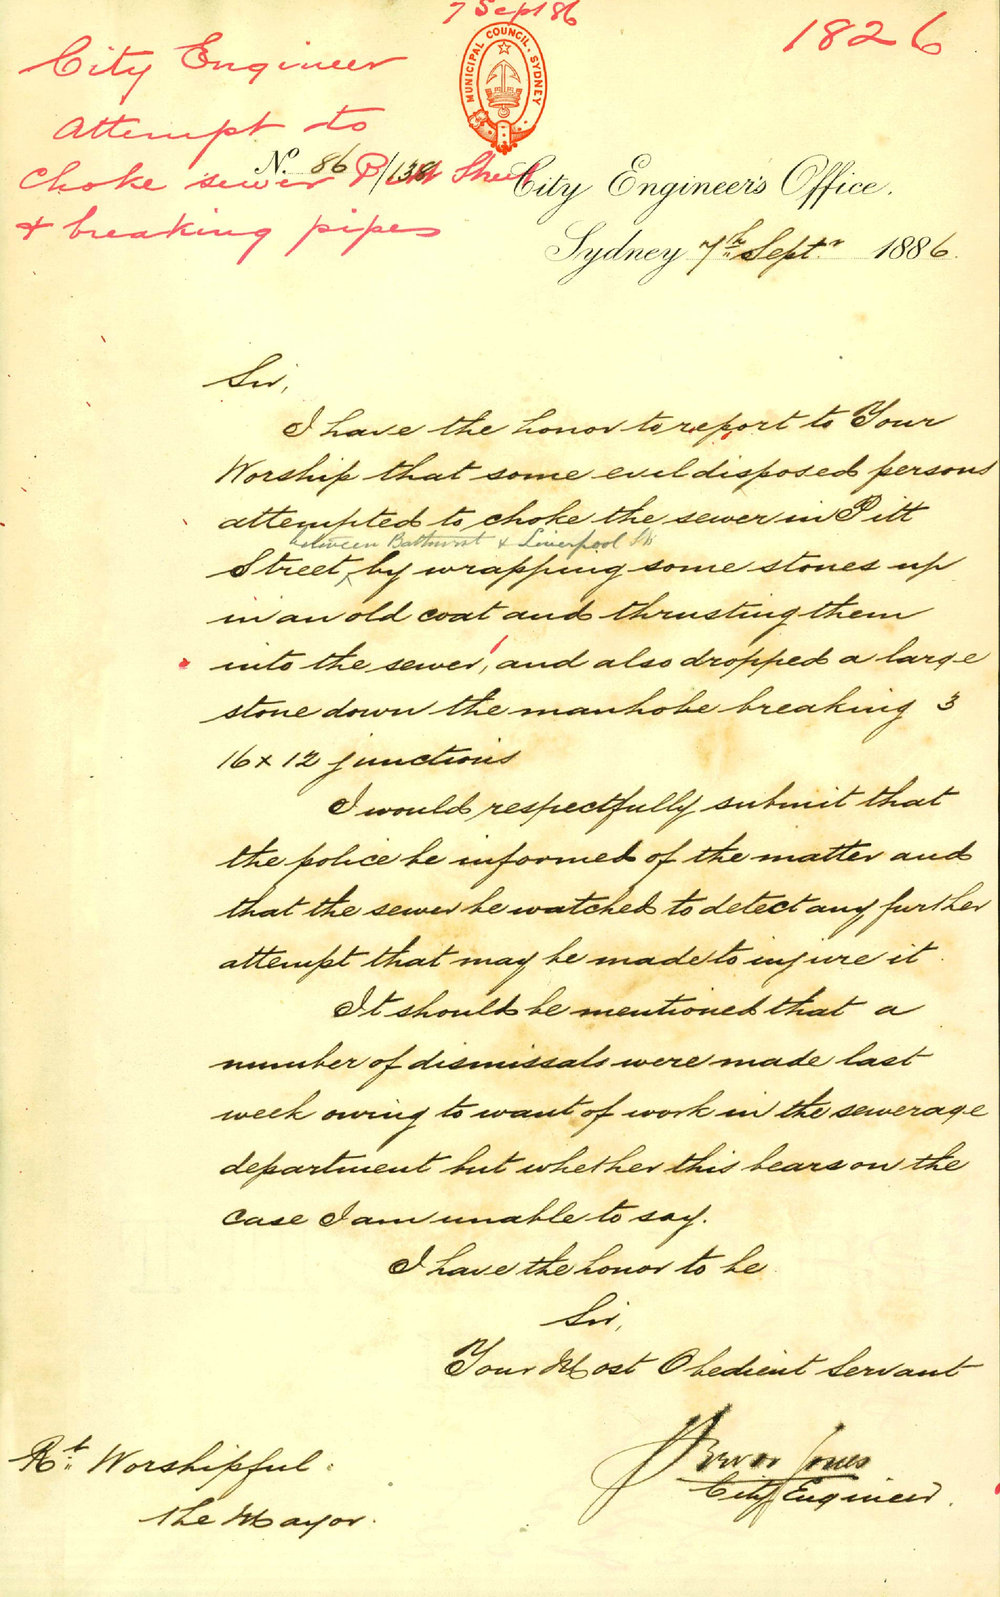 7 Sept 86
1826
City Engineer
Attempt to
choke sewer Pitt Street
& breaking pipes
MUNICIPAL COUNCIL. SYDNEY
No. 86/
City Engineer's Office.
Sydney 7th Septr 1886.
Sir,
I have the honor to report to Your
Worship that some evil disposed persons
attempted to choke the sewer in Pitt
between Bathurst & Liverpool Sts
Street, by wrapping some stones up
in an old coat and thrusting them
into the sewer, and also dropped a large
stone down the manhole breaking 3
16 x 12 junctions
I would respectfully submit that
the police be informed of the matter and
that the sewer be watched to detect any further
attempt that may be made to injure it.
It should be mentioned that a
number of dismissals were made last
week owing to want of work in the sewerage
department but whether this bears on the
case I am unable to say.
I have the honor to be
Sir,
Your Most Obedient Servant
Jones
City Engineer.
Rt. Worshipful.
The Mayor.